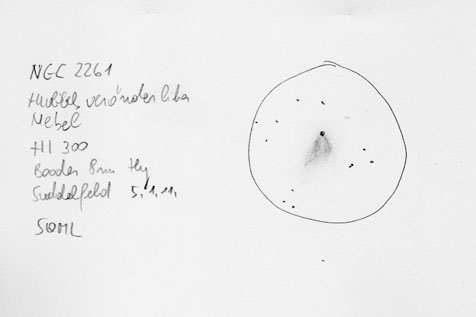 NGC 2261
Hubbels veränderlicher
Nebel
H1 300
Baader 8mm Hy
Sudelfeld 5.1.11.
SQML